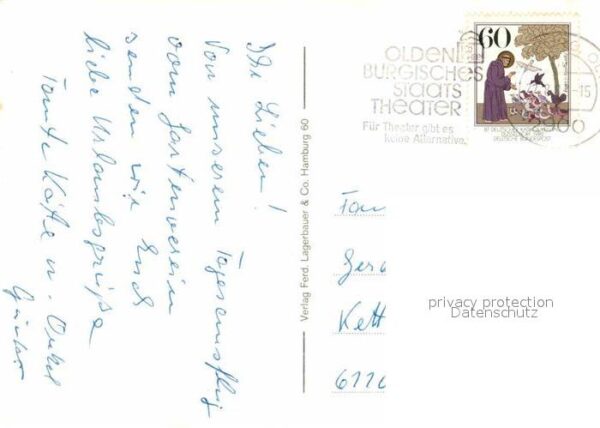 Ihr Lieben!
Von unserem Tagesausflug
vom Gartenverein
senden wir Euch
liebe Urlaubsgrüße
Tante Käthe u. Onkel
Günter
Verlag Ferd. Lagerbauer & Co. Hamburg 60
OLDEN
BURGISCHES
STAATS
THEATER
Für Theater gibt es
keine Alternative.
60
-15
2900
DEUTSCHE BUNDESPOST
Fam
Gera
Kett
privacy protection
Datenschutz